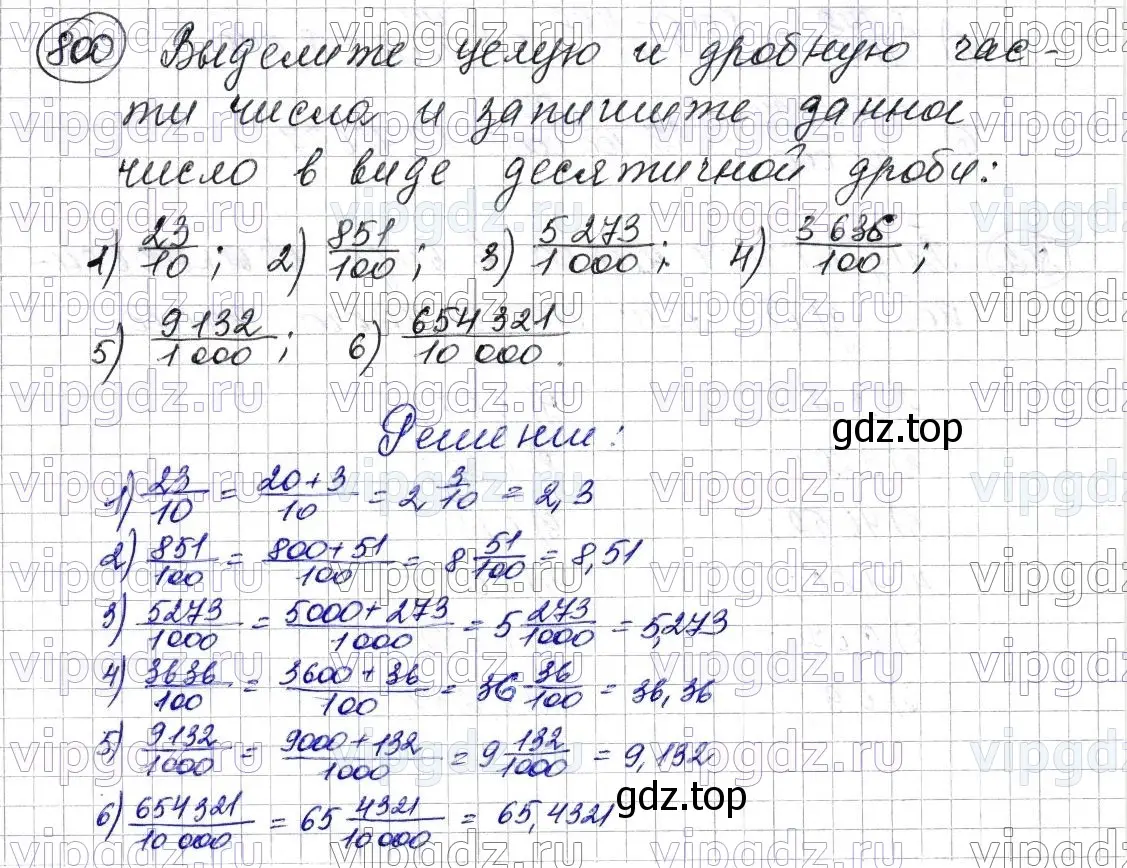 800 Выделите целую и дробную час-
ти числа и запишите данное
число в виде десятичной дроби:
1) 23/10; 2) 851/100; 3) 5 273/1 000; 4) 3 636/100;
5) 9 132/1 000; 6) 654 321/10 000.
Решение:
gdz.top
1) 23/10 = (20+3)/10 = 2 3/10 = 2,3
2) 851/100 = (800+51)/100 = 8 51/100 = 8,51
3) 5273/1000 = (5000+273)/1000 = 5 273/1000 = 5,273
4) 3636/100 = (3600+36)/100 = 36 36/100 = 36,36
5) 9132/1000 = (9000+132)/1000 = 9 132/1000 = 9,132
6) 654321/10 000 = 65 4321/10 000 = 65,4321
gdz.top
vipgdz.ru